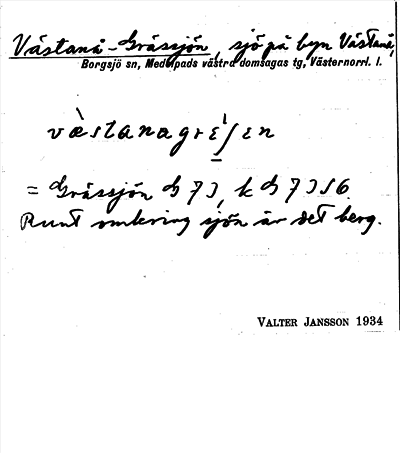 Västanå-Grässjön, sjö på byn Västanå,
Borgsjö sn, Medelpads västra domsagas tg, Västernorrl. l.
= Grässjön
Runt omkring sjön är det berg.
VALTER JANSSON 1934